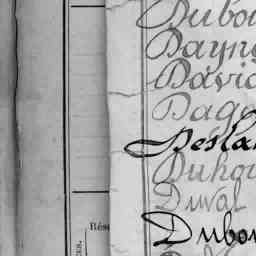 Dubou
Dayn
David
Dago
Deslan
Duhou
Duval
Dubou
Rés